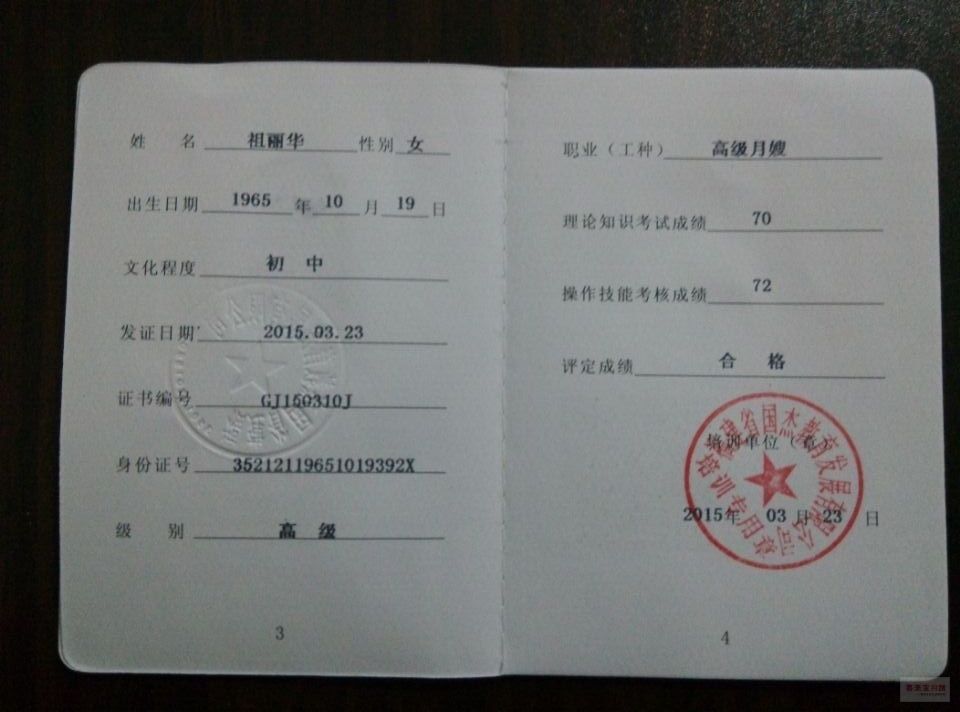 姓 名 祖丽华 性别 女
出生日期 1965 年 10 月 19 日
文化程度 初 中
发证日期 2015.03.23
证书编号 GJ150310J
身份证号 35212119651019392X
级 别 高 级
3
职业（工种） 高级月嫂
理论知识考试成绩 70
操作技能考核成绩 72
评定成绩 合 格
培训单位（章）
福建省国杰教育发展有限公司
培训专用章
2015年 03 月 23 日
4